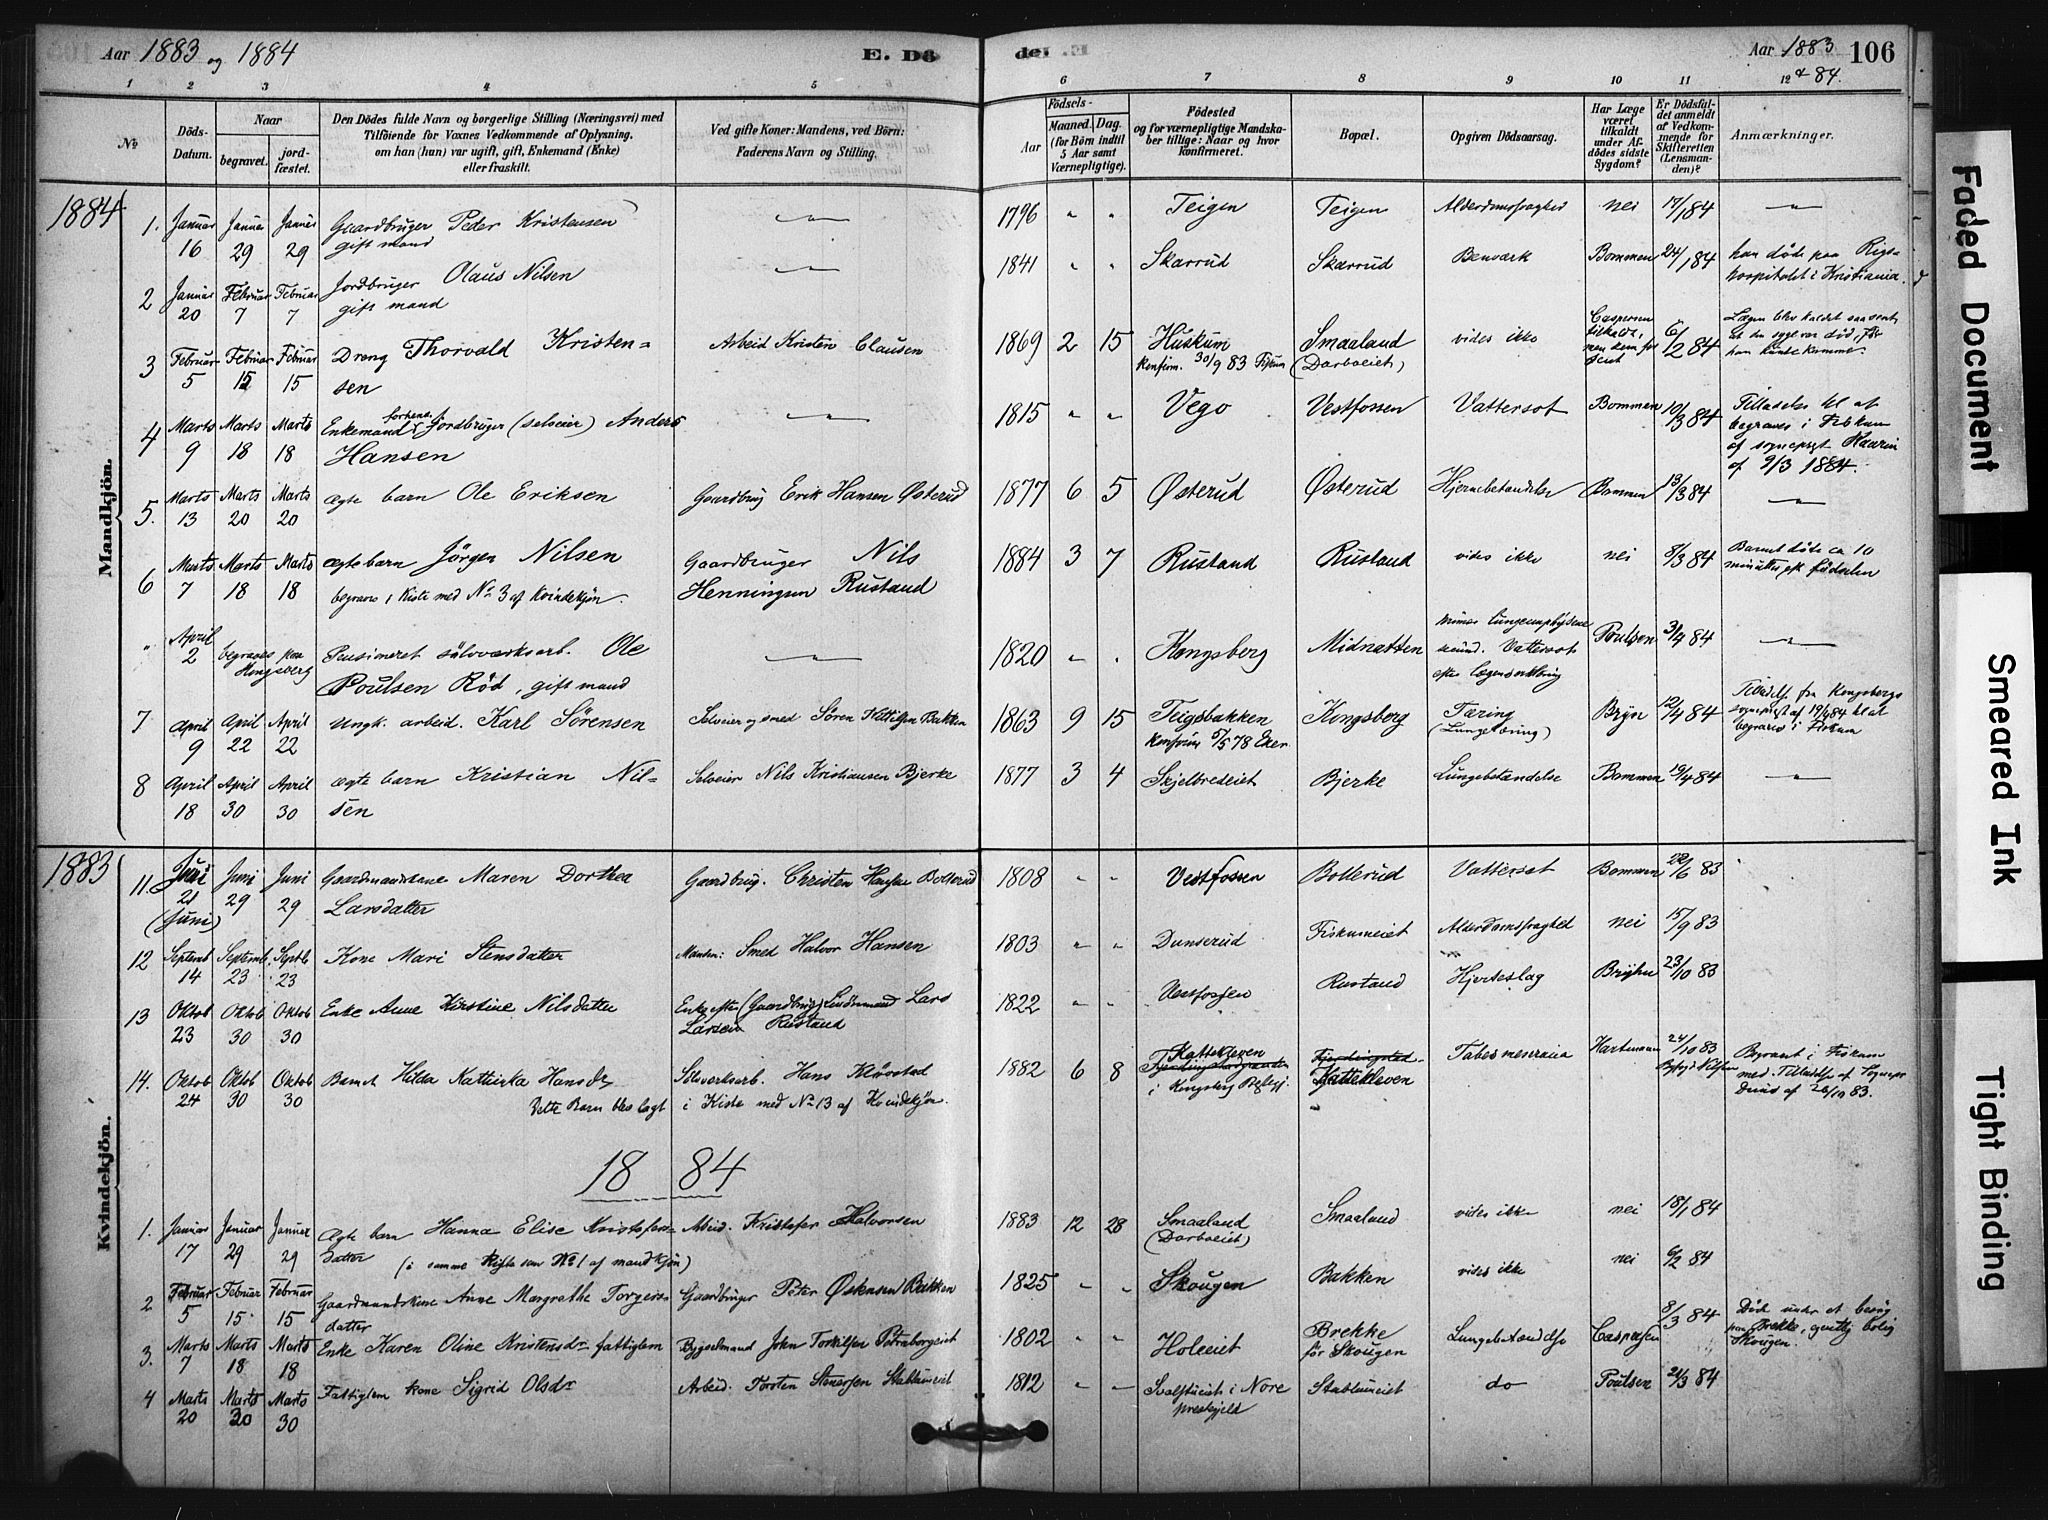 Aar 1883 og 1884
E. Dö
de. E.
Aar 1883 & 84.
106
1 2 3 4 5 6 7 8 9 10 11 12
No
Döds-Datum.
Naar
begravet.
jord-fæstet.
Den Dödes fulde Navn og borgerlige Stilling (Næringsvei) med
Tilföiende for Voxnes Vedkommende af Oplysning,
om han (hun) var ugift, gift, Enkemand (Enke)
eller fraskilt.
Ved gifte Koner: Mandens, ved Börn:
Faderens Navn og Stilling.
Födsels-
Aar
Maaned. Dag.
(for Börn indtil
5 Aar samt
Værnepligtige).
Födested
og for værnepligtige Mandska-
ber tillige: Naar og hvor
konfirmeret.
Bopæl.
Opgiven Dödsaarsag.
Har Læge
været
tilkaldt
under Af-
dödes sidste
Sygdom?
Er Dödsfal-
det anmeldt
af Vedkom-
mende for
Skifteretten
(Lensman-
den)?
Anmærkninger.
Mandkjön.
1884
1. Januar 16 Janua 29 Januar 29 Gaardbruger Peder Kristensen gift mand 1796 " " Teigen Teigen Alderdomsfraghed nei 17/1 84
2 Januar 20 Februar 7 Februar 7 Jordbruger Olaus Nilsen gift mand 1841 " " Skarrud Skarrud Benværk Bommen 24/1 84 han døde paa Rigshospitalet i Kristiania.
3 Februar 5 Februar 15 Februar 15 Dreng Thorvald Kristensen Arbeid Kristen Clausen 1869 2 15 Huskum Konfirm. 30/9 83 Fiskum Smaaland (Darboeiet) vides ikke Caspersen tilkaldt, men kom for seent 6/2 84 Lægen blev kaldet saa sent, at den syge var død, før han kunde komme.
4 Marts 9 Marts 18 Marts 18 Enkemand forhenv. Jordbruger (selveier) Anders Hansen 1815 " " Vego Vestfossen Vattersot Bommen 10/3 84 Tilladelse til at begraves i Fiskum af sogneprest Kaarin af 9/3 1884.
5. Marts 13 Marts 20 Marts 20 ægte barn Ole Eriksen Gaardbrug Erik Hansen Østerud 1877 6 5 Østerud Østerud Hjernebetændelse Bommen 13/3 84
6 Marts 7 Marts 18 Marts 18 ægte barn Jörgen Nilsen begraves i Kiste med No 3 af Kvindekjøn. Gaardbruger Nils Henningsen Rustand 1884 3 7 Rustand Rustand vides ikke nei 8/3 84 Barnet døde ca 10 minutter eft fødselen
" April 2 begraves paa Kongsberg Pensioneret sölvværksarb. Ole Poulsen Röd, gift mand 1820 " " Kongsberg Midnatten Vattersot efter Lægens erklæring Poulsen 3/4 84
7 April 9 April 22 April 22 ungk. arbeid. Karl Sörensen Selveier og smed Sören Kittilsen Bakken 1863 9 15 Teigsbakken Konfirm 5/5 78 Eker. Kongsberg Tæring (Lungetæring) Bryn 12/4 84 Tilladelse fra Kongsbergs sogneprest af 19/4 84 til at begraves i Fiskum
8 April 18 April 30 April 30 ægte barn Kristian Nilsen Selveier Nils Kristiansen Bjerke 1877 3 4 Skjelbredeiet Bjerke Lungebetændelse Bommen 19/4 84
Kvindekjön.
1883
11. Juni 21 (Juni) Juni 29 Juni 29 Gaardmandskone Maren Dorthea Larsdatter Gaardbrug. Christen Hansen Bollerud 1808 " " Vestfossen Bollerud Vattersot Bommen 22/6 83
12 Septemb 14 Septemb. 23 Septb 23 Kone Mari Stensdatter Manden: Smed Halvor Hansen 1803 " " Dunserud Fiskumeiet Alderdomsfraghed nei 15/9 83
13 Oktob 23 Oktob 30 Oktob 30 Enke Anne Kirstine Nilsdatter Enke efter (Gaardbrug) Lars Larsen Rustand 1822 " " Vestfossen Rustand Hjerteslag Bryhn 23/10 83
14. Oktob 24 Oktob 30 Oktob 30 Barnet Hilda Kathinka Hansdr Dette Barn blev lagt i Kiste med No 13 af Kvindekjøn. Sölvverksarb. Hans Klåvstad 1882 6 8 Kattekleven i Kongsberg Kattekleven Tabes mesraica Hartmann 24/10 83 Begravet i Fiskum med Tilladelse af Sogneprest af 26/10 83.
18 84
1. Januar 17 Januar 29 Januar 29 Ægte barn Hanna Elise Kristofersdatter (i samme Kiste som No 1 af mandkjøn) Arbeid. Kristofer Halvorsen 1883 12 28 Smaaland (Darboeiet) Smaaland vides ikke nei 18/1 84
2 Februar 5 Februar 15 Februar 15 Gaardmandskone Anne Margrethe Torgersdatter Gaardbruger Peter Østensen Bakken 1825 " " Skougen Bakken vides ikke nei 6/2 84
3. Marts 7 Marts 18 Marts 18 Enke Karen Oline Kristensdr fattiglem Bygselmand John Torkilsen Petersborgeiet 1802 " " Holeeiet Brekke før Skougen Lungebetændelse Caspersen 8/3 84 Døde under et besøg paa Brekke, egentlig bolig Skougen.
4 Marts 20 Marts 30 Marts 30 Fattiglem kone Sigrid Olsdr Arbeid. Torsten Stenersen Stablumeiet 1812 " " i Nore prestegjeld Stablumeiet do Poulsen 21/3 84
Faded Document
Smeared Ink
Tight Binding